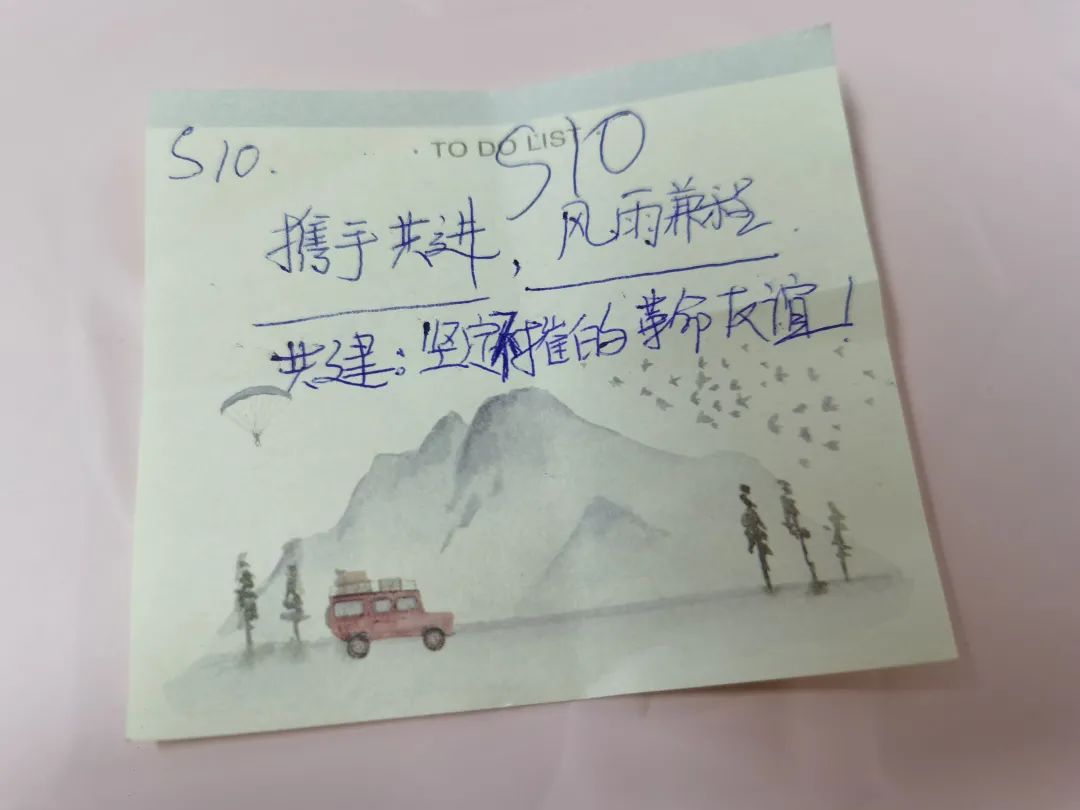 S10.
· TO DO LIST ·
S10
携手共进，风雨兼程.
共建：坚定不摧的革命友谊！